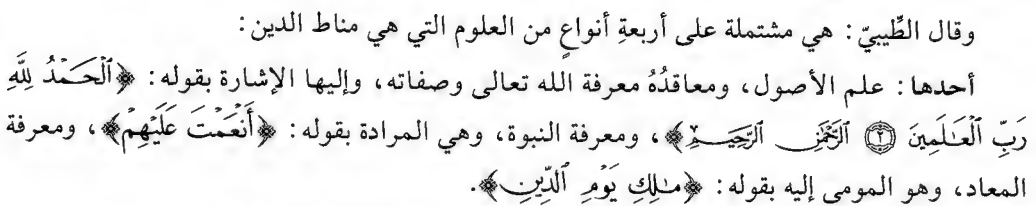 وقال الطِّيبيّ: هي مشتملة على أربعةِ أنواعٍ من العلوم التي هي مناط الدين:
أحدها: علم الأصول، ومعاقدُهُ معرفة الله تعالى وصفاته، وإليها الإشارة بقوله: ﴿ٱلْحَمْدُ لِلَّهِ
رَبِّ ٱلْعَٰلَمِينَ ﴿٢﴾ ٱلرَّحْمَٰنِ ٱلرَّحِيمِ﴾، ومعرفة النبوة، وهي المرادة بقوله: ﴿أَنْعَمْتَ عَلَيْهِمْ﴾، ومعرفة
المعاد، وهو المومى إليه بقوله: ﴿مَٰلِكِ يَوْمِ ٱلدِّينِ﴾.